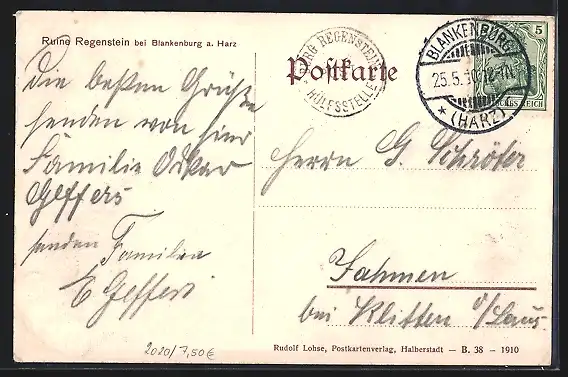 Ruine Regenstein bei Blankenburg a. Harz
BURG REGENSTEIN
HÜLFSSTELLE
Postkarte
BLANKENBURG
25.5.10.12-1N.
* (HARZ)
5
Die besten Grüße
senden von hier
Familie Oskar
Geffers
senden Familie
E Geffers
Herrn G. Schröter
Fahmen
bei Klitten o/Laus.
2020/7,50€
Rudolf Lohse, Postkartenverlag, Halberstadt — B. 38 — 1910